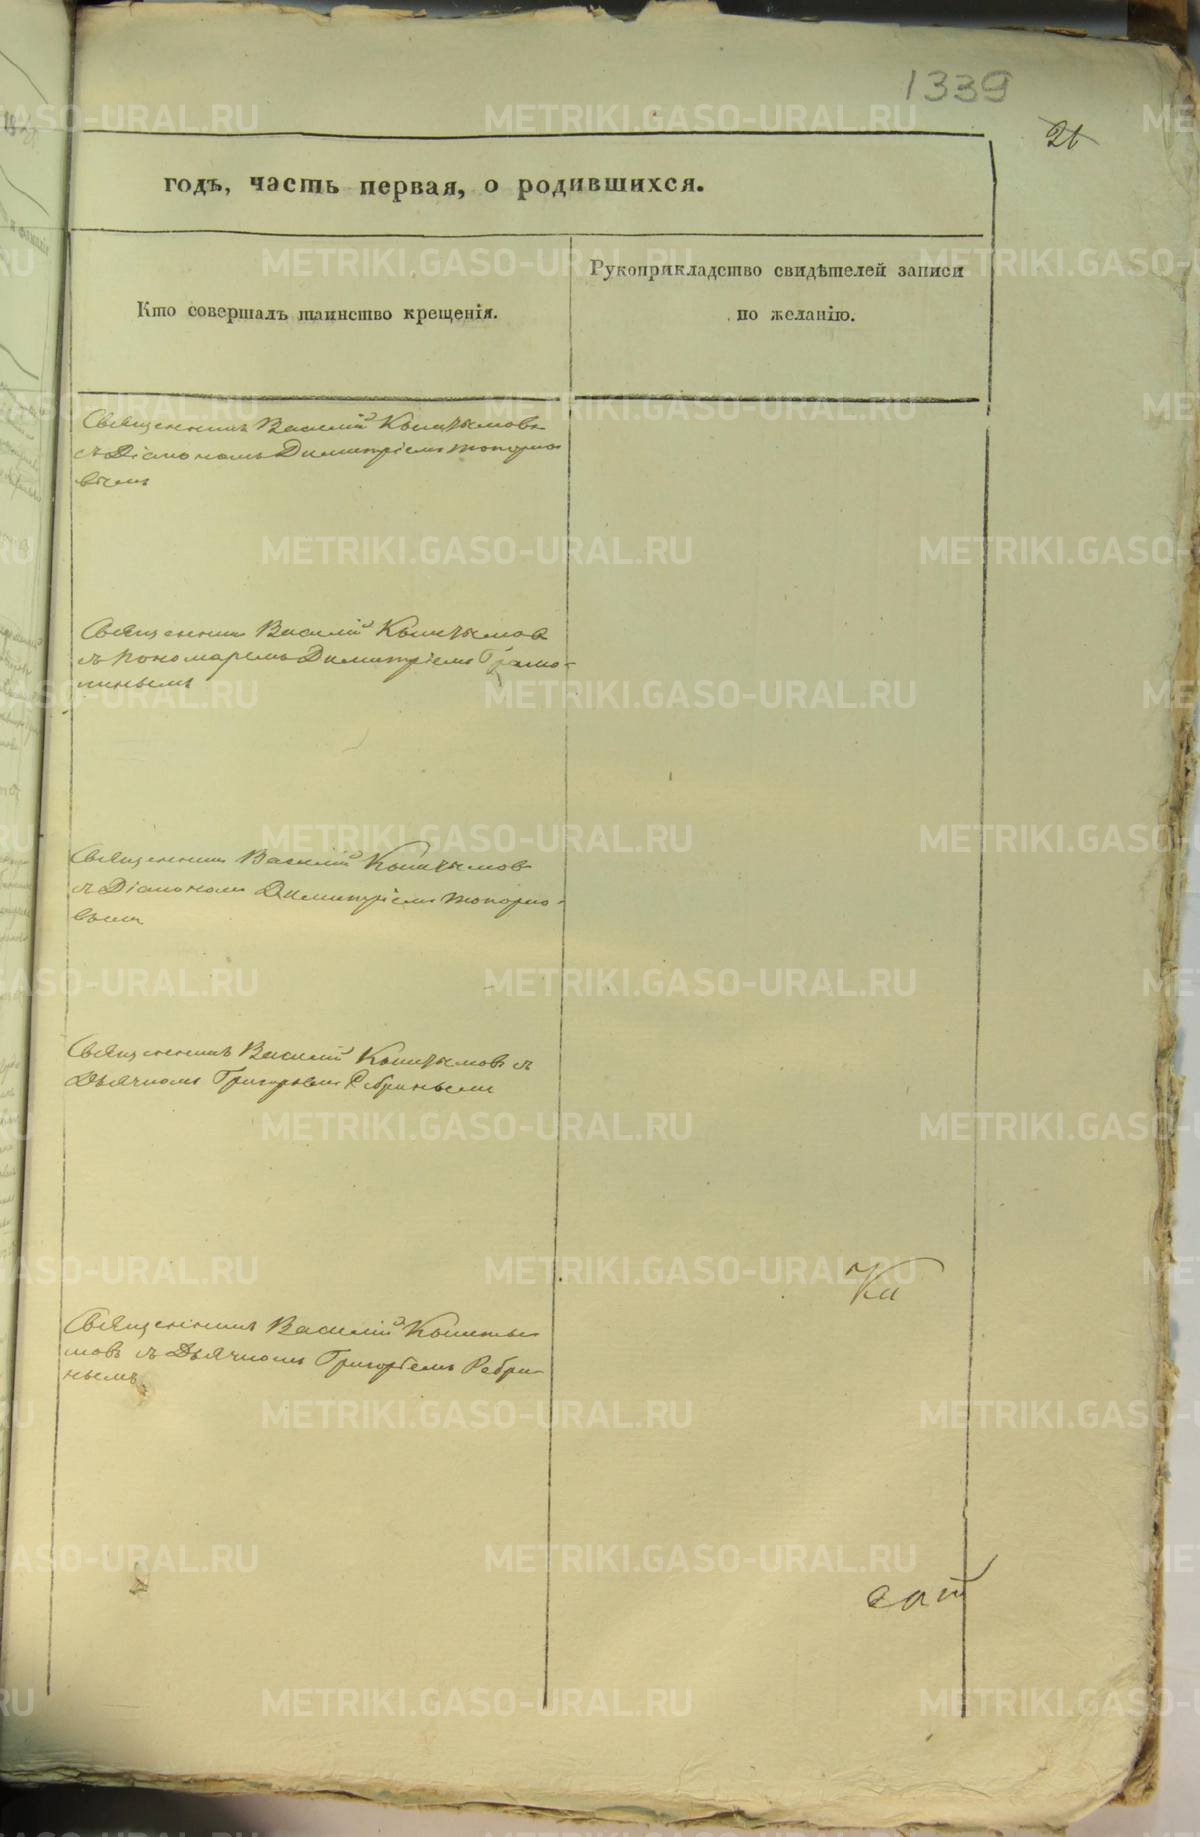 1339
21
годъ, часть первая, о родившихся.
Кто совершалъ таинство крещенія.
Рукоприкладство свидѣтелей записи
по желанію.
Священникъ Василій Кыштымовъ
съ Діакономъ Димитріемъ Топорко
вымъ
Священникъ Василій Кыштымов
съ Пономаремъ Димитріемъ
Священникъ Василій Кыштымов
съ Діакономъ Димитріемъ Топорко-
вымъ
Священникъ Василій Кыштымовъ съ
Дьячкомъ Григорьемъ Ребринымъ
Священникъ Василій Кышты
мовъ съ Дьячкомъ Григоріемъ Ребри-
нымъ
METRIKI.GASO-URAL.RU